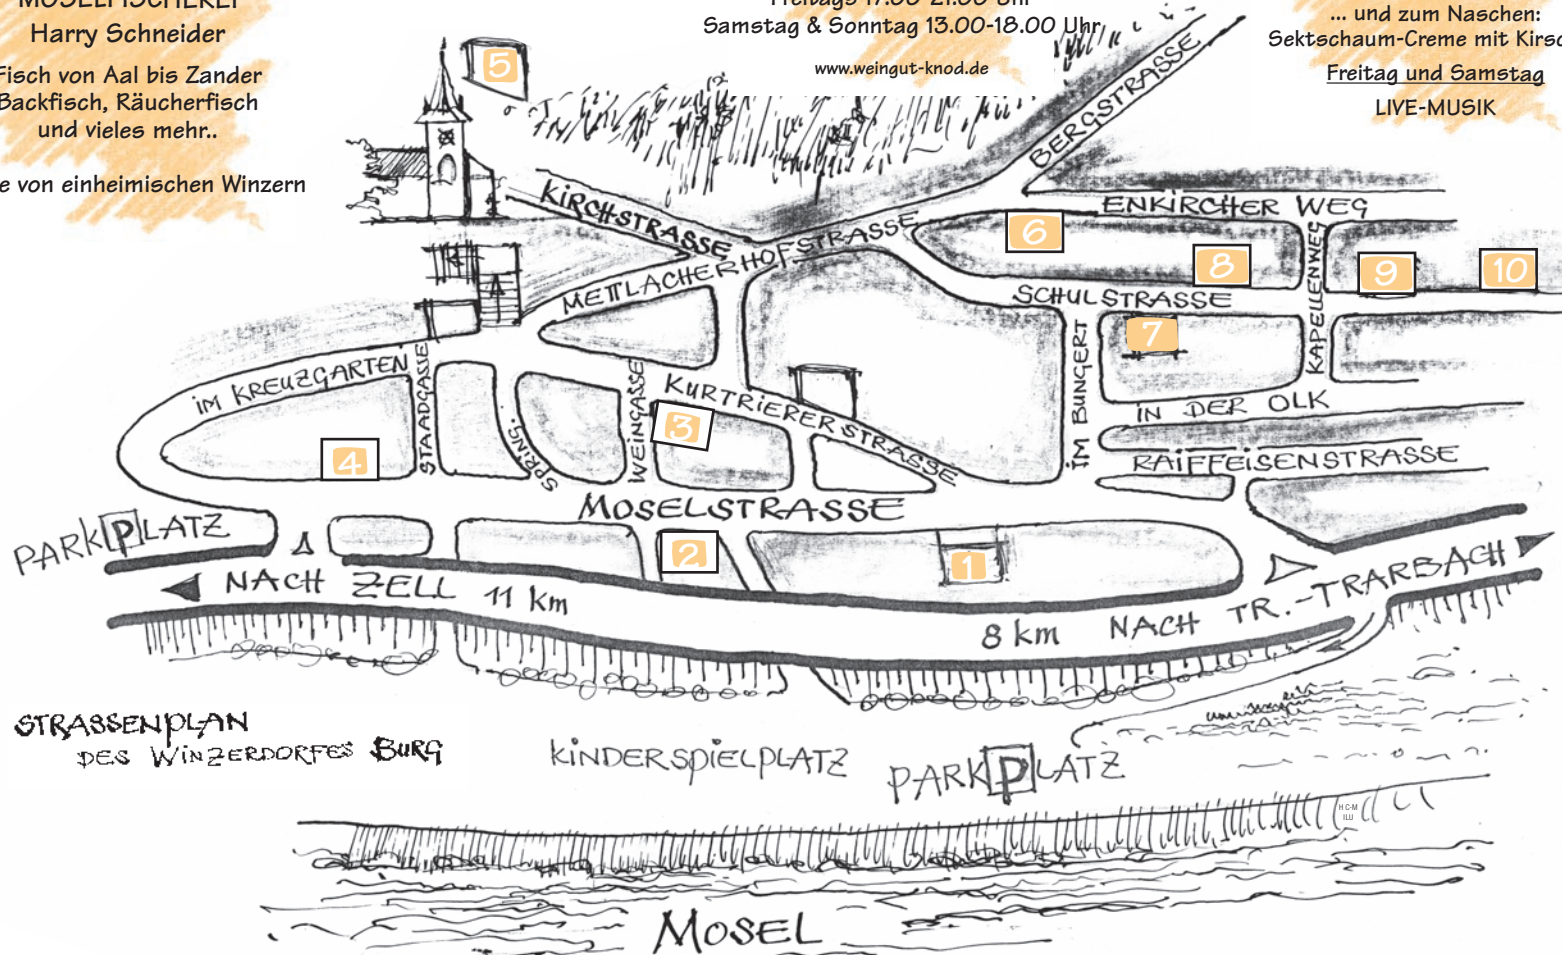 MOSELFISCHEREI
Harry Schneider
Fisch von Aal bis Zander
Backfisch, Räucherfisch
und vieles mehr..
von einheimischen Winzern
Freitags 17.00-21.00 Uhr
Samstag & Sonntag 13.00-18.00 Uhr
www.weingut-knod.de
... und zum Naschen:
Sektschaum-Creme mit
Freitag und Samstag
LIVE-MUSIK
5
BERGSTRASSE
KIRCHSTRASSE
METTLACHERHOFSTRASSE
ENKIRCHER WEG
6
8
9
10
SCHULSTRASSE
KAPELLENWEG
7
IM BUNGERT
IM KREUZGARTEN
STAADGASSE
SPRING.
WEINGASSE
KURTRIERERSTRASSE
3
4
IN DER OLK
RAIFFEISENSTRASSE
MOSELSTRASSE
2
1
PARKPLATZ
NACH ZELL 11 km
8 km NACH TR.-TRARBACH
STRASSENPLAN
DES WINZERDORFES BURG
KINDERSPIELPLATZ
PARKPLATZ
H C-M
ILU
MOSEL